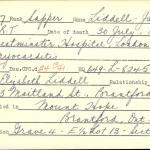 Rank Sapper Name Liddell - Ja
R.T. Date of death 30 July, 19
estminster, Hospital, London
yocarditis
H.Q. 649-L-8245
Elizabeth Liddell Relationship
3 Maitland St., Brantford
Mount Hope
Brantford, Ont.
ion Grave 4 - E½ Lot 13 - Sect